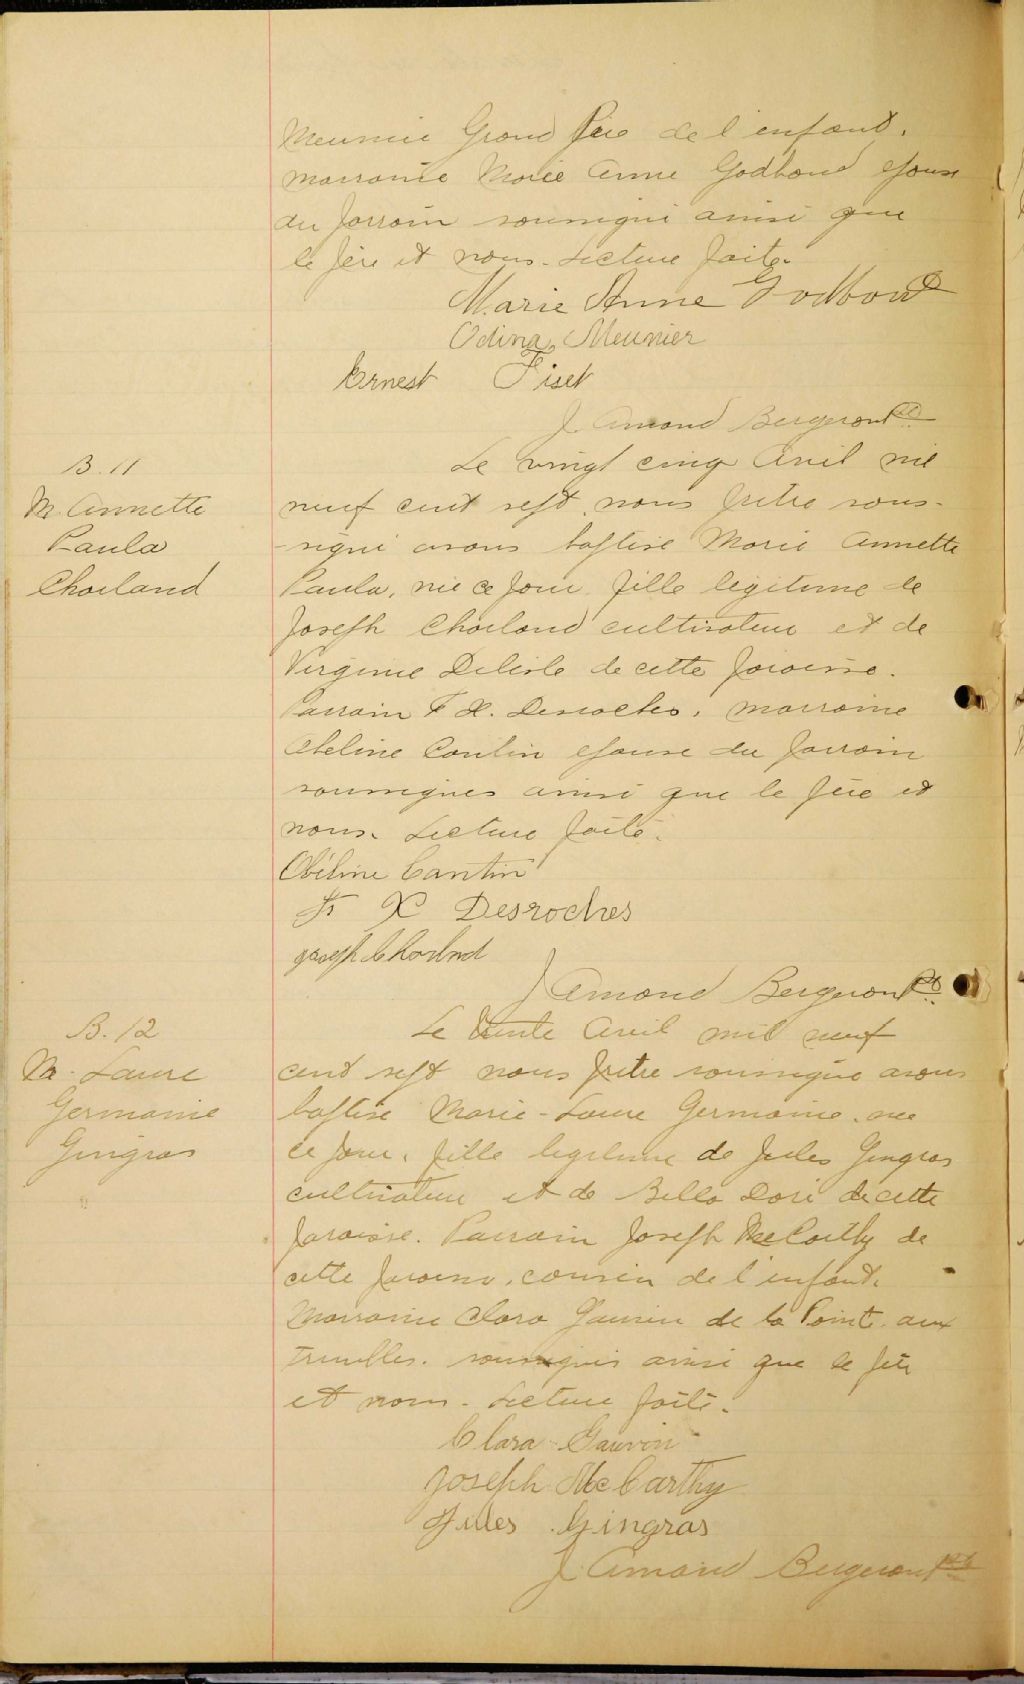 Meunier Grand Père de l'enfant,
marraine Marie Anne Godbout epouse
du parrain soussigné ainsi que
le père et nous. Lecture faite.
Marie Anne Godbout
Odina Meunier
Ernest Fiset
J. Amand Bergeron Ptre
B. 11
M. Annette
Paula
Charland
Le vingt cinq Avril mil
neuf cent sept, nous prêtre sous-
-signé avons baptisé Marie Annette
Paula, née ce jour fille legitime de
Joseph Charland cultivateur et de
Virginie Delisle de cette paroisse.
Parrain F X. Desroches, marraine
Abeline Cantin epouse du parrain
soussignes ainsi que le père et
nous. Lecture faite.
Obéline Cantin
Fs X Desroches
joseph Charland
J Amand Bergeron Pt
B. 12
M. Laure
Germaine
Gingras
Le trente Avril mil neuf
cent sept nous prêtre soussigné avons
baptisé Marie-Laure Germaine, née
ce jour, fille legitime de Jules Gingras
cultivateur et de Bella Doré de cette
paroisse. Parrain Joseph McCarthy de
cette paroisse, cousin de l'enfant.
Marraine Clara Gauvin de la Pointe aux
trembles. soussignés ainsi que le père
et nous. Lecture faite.
Clara Gauvin
Joseph McCarthy
Jules Gingras
J. Amand Bergeron Pt